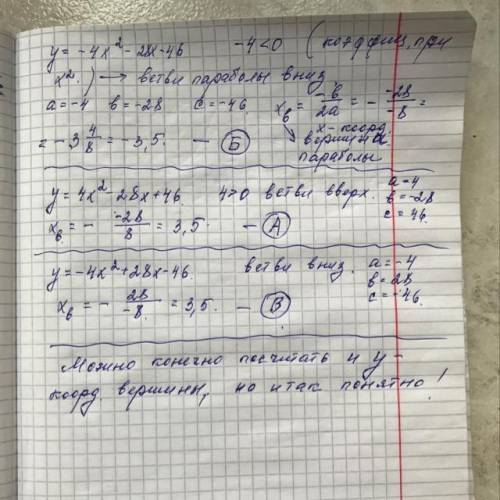 y = -4x² - 28x - 46   -4 < 0   (коэффиц. при
x².) → ветви параболы вниз
a = -4   в = -28   c = -46.   x_в = -в/2a = - -28/-8 =
= -3 4/8 = -3,5.   — (Б)   x-коорд. вершина параболы
y = 4x² - 28x + 46.   4>0 ветви вверх.   a = 4   в = -28   c = 46.
x_в = - -28/8 = 3,5   — (А)
y = -4x² + 28x - 46.   ветви вниз.   a = -4   в = 28   c = -46
x_в = - 28/-8 = 3,5.   — (В)
Можно конечно посчитать и y-
коорд. вершины, но итак понятно!